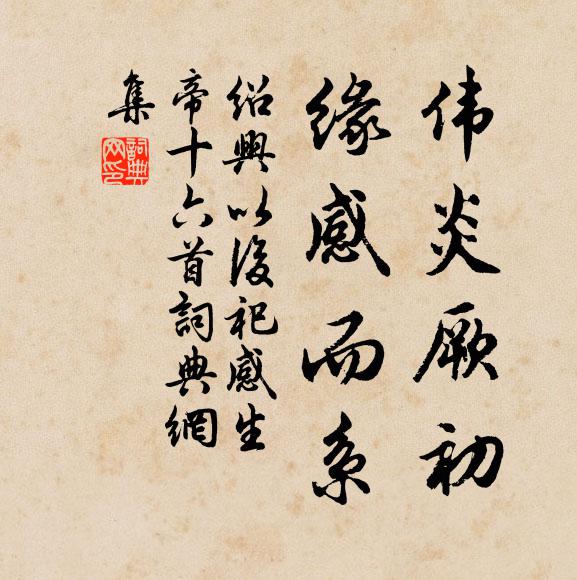 伟炎厥初
缘感而系
绍興以後祀感生
帝十六首詞典網
集
詞典
网印